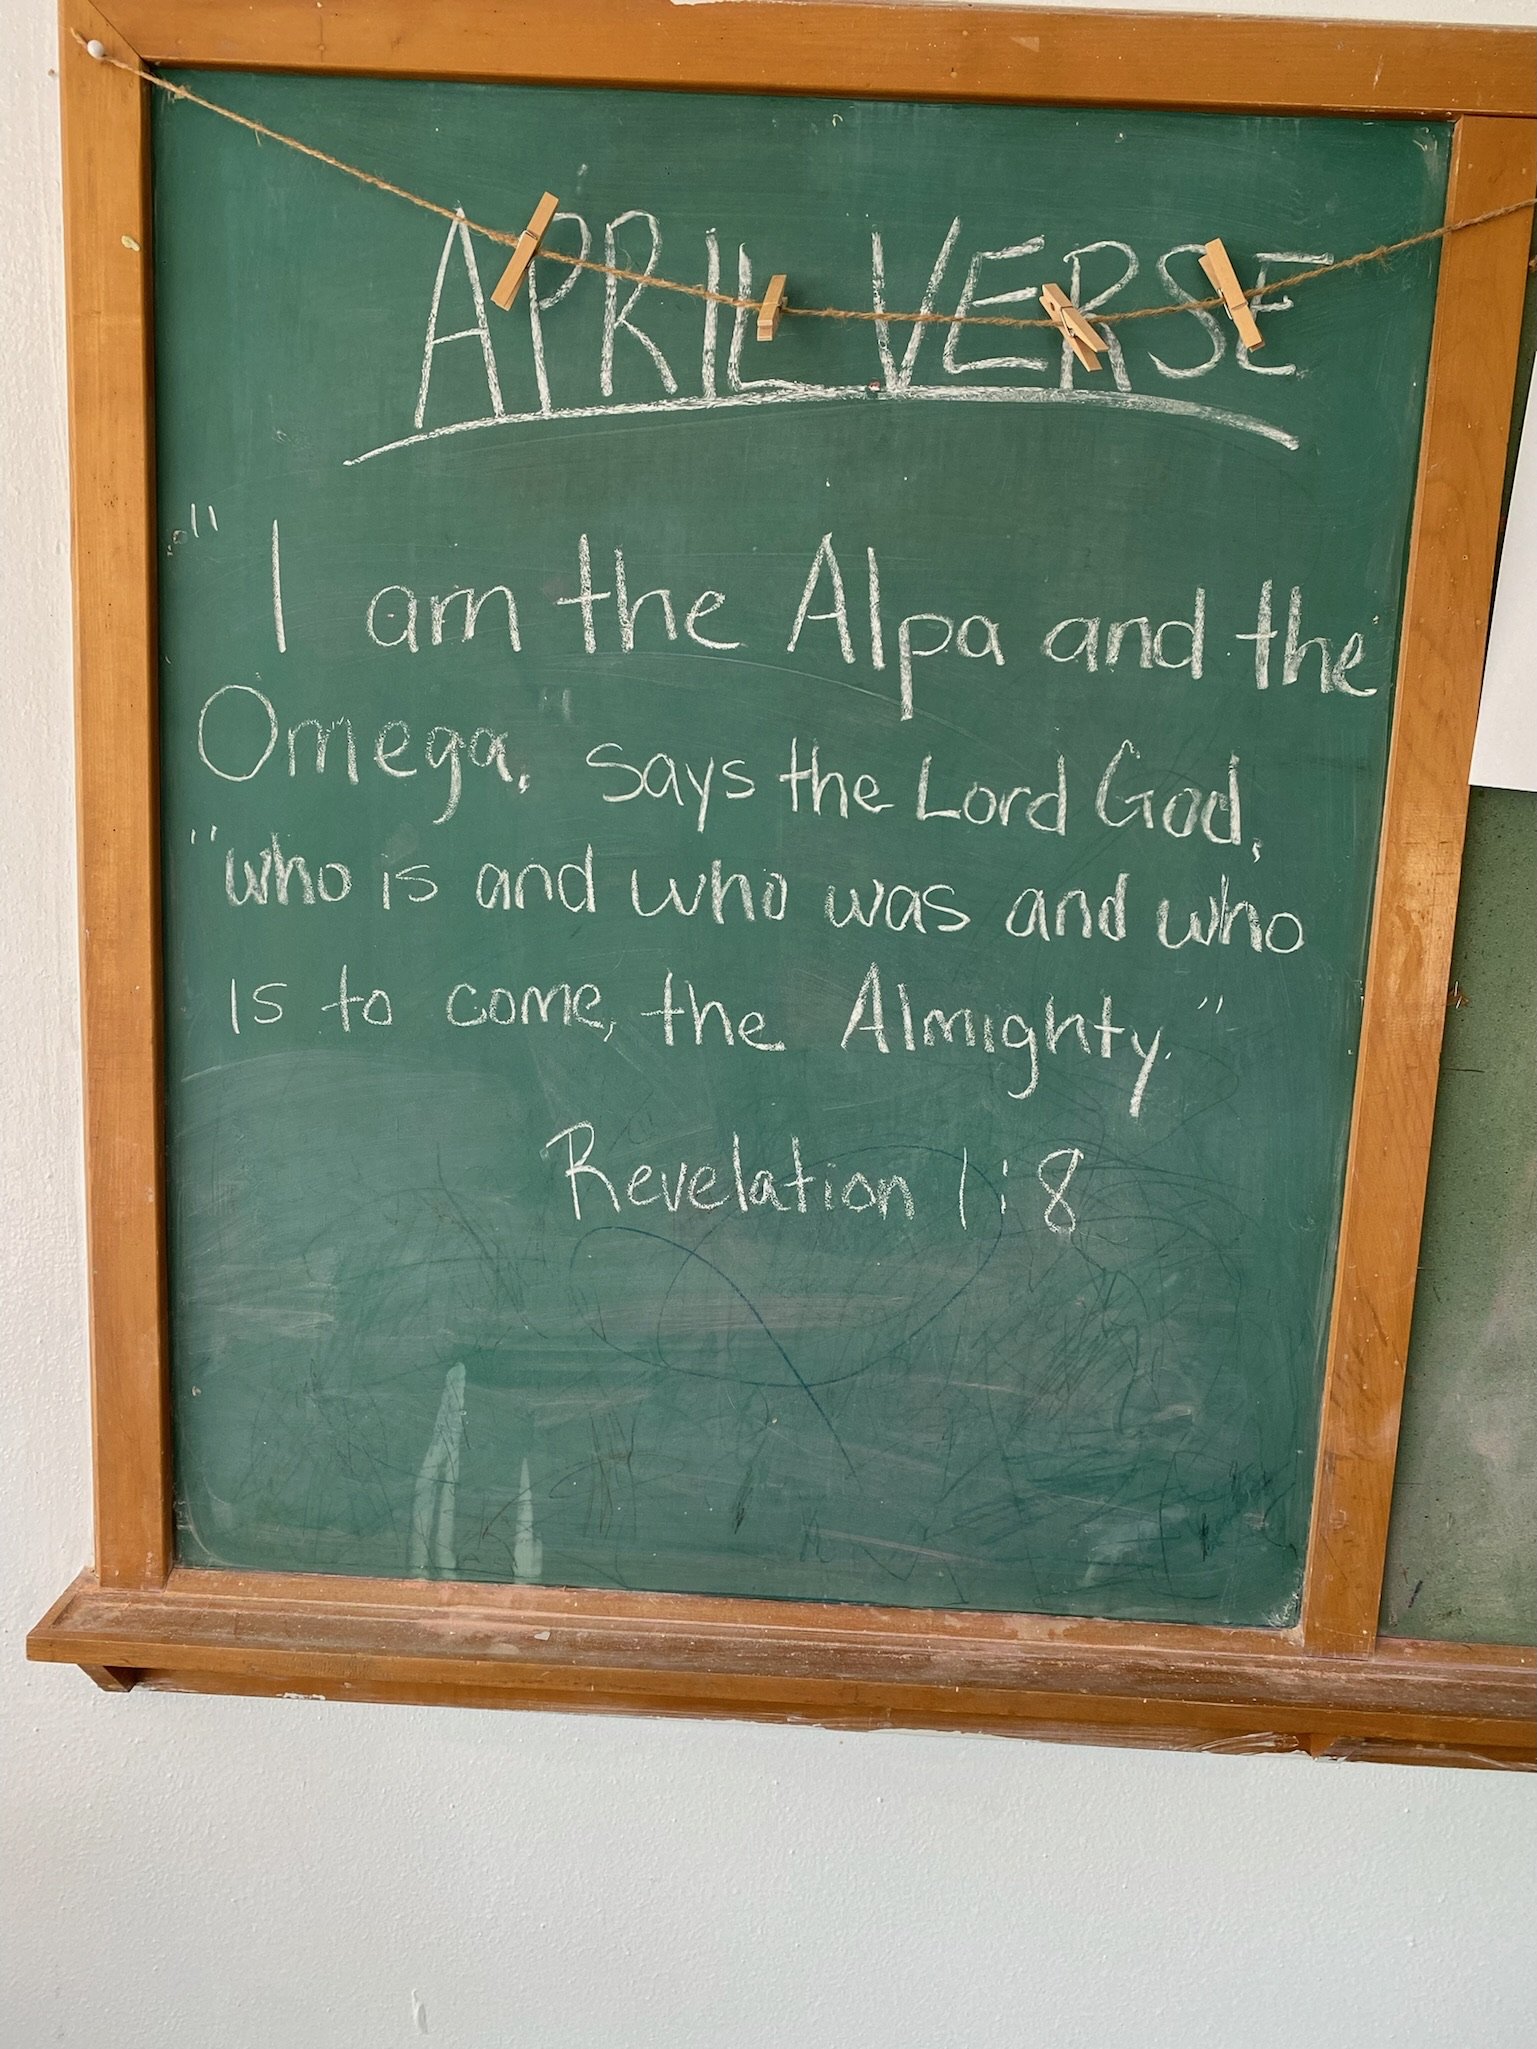 APRIL VERSE
"I am the Alpa and the
Omega," says the Lord God,
"who is and who was and who
is to come, the Almighty."
Revelation 1:8